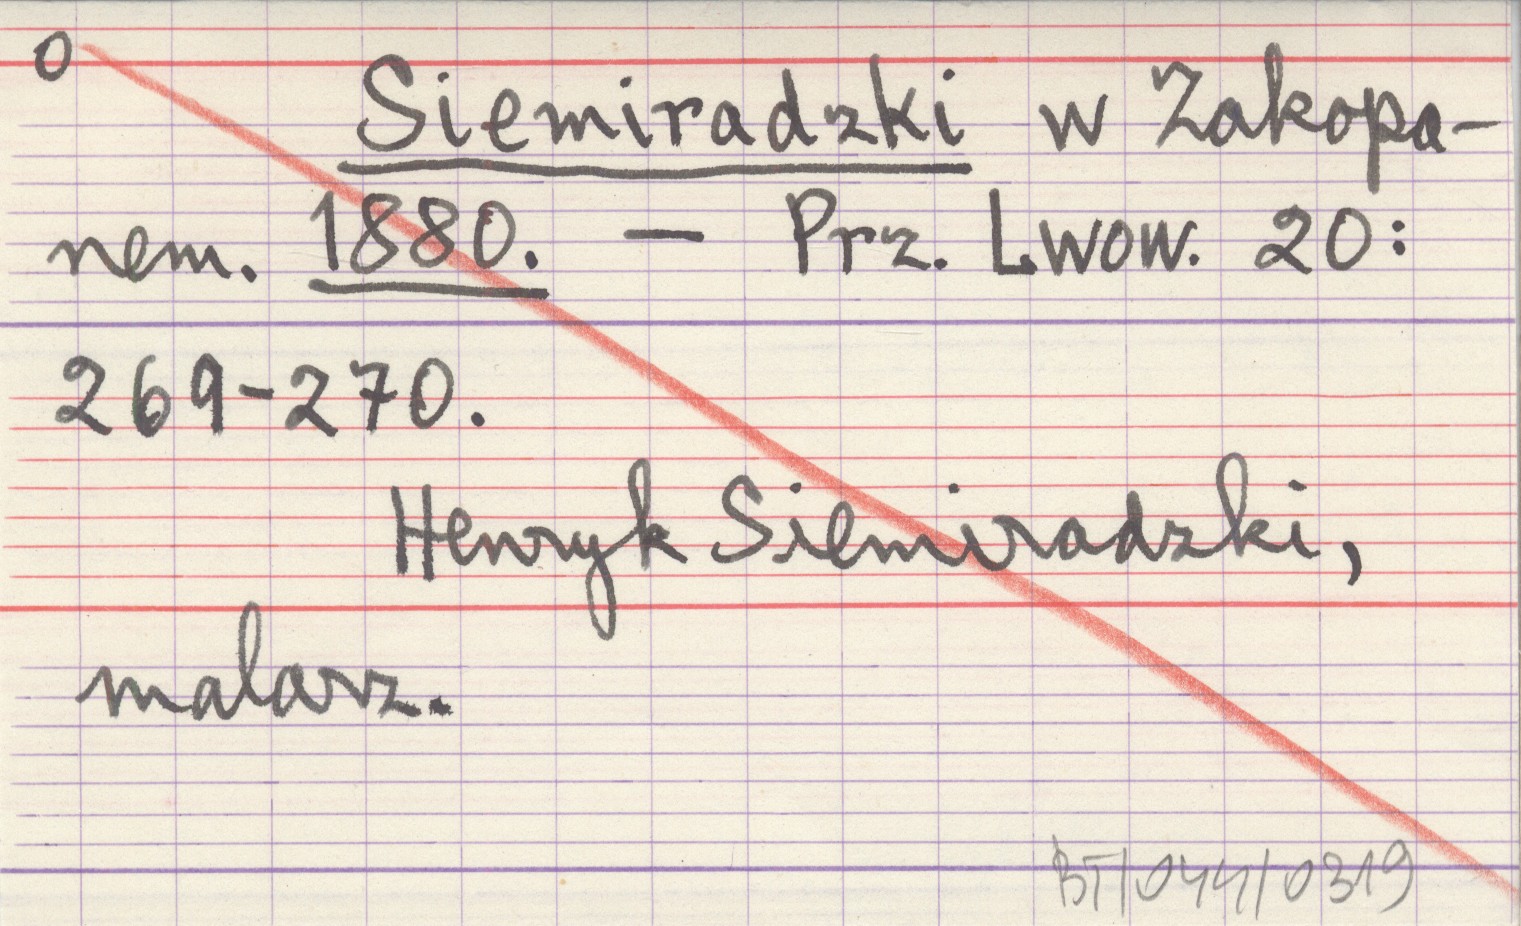 0
Siemiradzki w Zakopa-
nem. 1880. — Prz. Lwow. 20:
269-270.
Henryk Siemiradzki,
malarz.
BT/044/0319